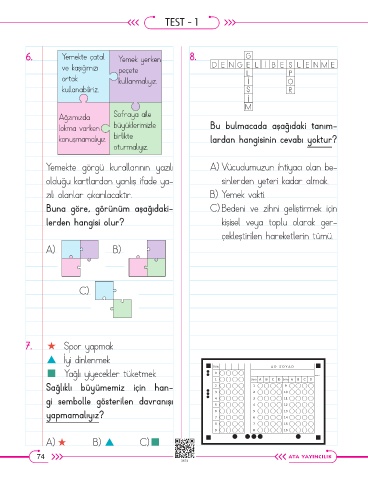 TEST - 1
6.
Yemekte çatal
ve kaşığımızı
ortak
kullanabiliriz.
Yemek yerken
peçete
kullanmalıyız.
Ağzımızda
lokma varken
konuşmamalıyız.
Sofraya aile
büyüklerimizle
birlikte
oturmalıyız.
Yemekte görgü kurallarının yazılı
olduğu kartlardan yanlış ifade ya-
zılı olanlar çıkarılacaktır.
Buna göre, görünüm aşağıdaki-
lerden hangisi olur?
A)
B)
C)
7.
★ Spor yapmak
▲ İyi dinlenmek
■ Yağlı yiyecekler tüketmek
Sağlıklı büyümemiz için han-
gi sembolle gösterilen davranışı
yapmamalıyız?
A) ★ B) ▲ C) ■
8.
G
DENGELİBESLENME
L
İ
Ş
İ
M
P
O
R
Bu bulmacada aşağıdaki tanım-
lardan hangisinin cevabı yoktur?
A) Vücudumuzun ihtiyacı olan be-
sinlerden yeteri kadar almak.
B) Yemek vakti.
C) Bedeni ve zihni geliştirmek için
kişisel veya toplu olarak ger-
çekleştirilen hareketlerin tümü.
AD SOYAD
74
ATA YAYINCILIK